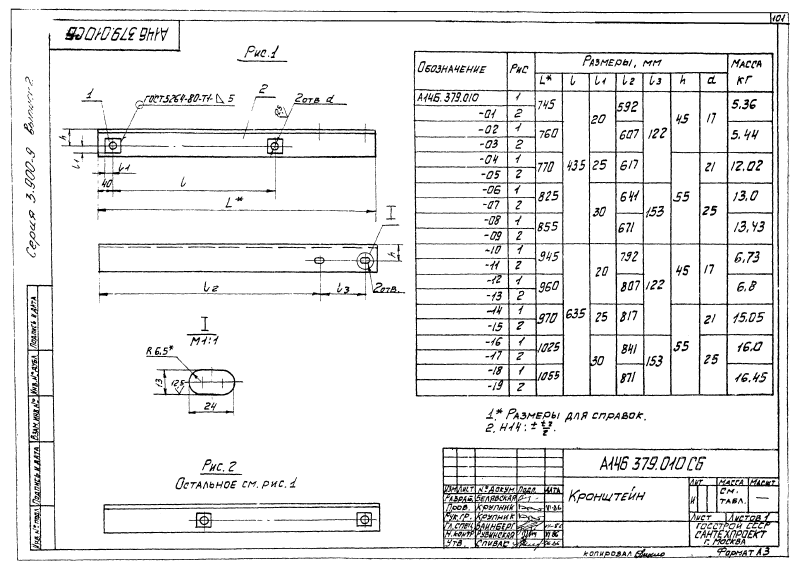 101
А14Б 379.010СБ
Серия 3.900-9 Выпуск 2
Рис.1
1
ГОСТ 5264-80-Т1- 5
2
2отв d
h
l1
l1
40
l
L*
I
h
l2
l3
2отв.
I
М1:1
R 6,5*
13
12,5
24
Рис. 2
Остальное см. рис.1
Обозначение Рис Размеры, мм Масса кг
L* l l1 l2 l3 h d
А14Б.379.010 1 745 435 20 592 122 45 17 5.36
-01 2
-02 1 760 607 5.44
-03 2
-04 1 770 25 617 55 21 12.02
-05 2
-06 1 825 30 641 153 25 13,0
-07 2
-08 1 855 671 13,43
-09 2
-10 1 945 635 20 792 122 45 17 6,73
-11 2
-12 1 960 807 6,8
-13 2
-14 1 970 25 817 55 21 15.05
-15 2
-16 1 1025 30 841 153 25 16.0
-17 2
-18 1 1055 871 16.45
-19 2
1.* Размеры для справок.
2. H14; ± t2/2.
А14Б 379.010 СБ
Изм Лист № докум Подп. Дата
Разраб. Белявская
Пров. Крупник
Рук.гр. Крупник
Гл.спец. Вайнберг
Н.контр Рубинская
Утв. Спивак
Кронштейн
Лит Масса Масшт.
И см. табл. —
Лист Листов 1
Госстрой СССР
Сантехпроект
г. Москва
копировал
Формат А3
Инв.№ подл. Подпись и дата Взам.инв № Инв.№ дубл. Подпись и дата